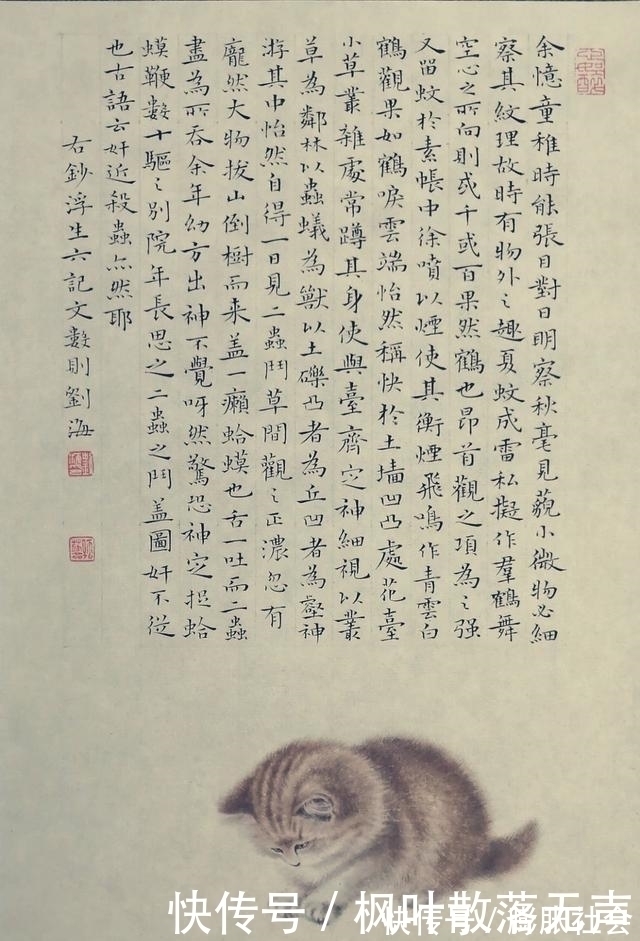 余憶童稚時能張目對日明察秋毫見藐小微物必細
察其紋理故時有物外之趣夏蚊成雷私擬作羣鶴舞
空心之所向則或千或百果然鶴也昂首觀之項為之强
又留蚊於素帳中徐噴以煙使其衝煙飛鳴作青雲白
鶴觀果如鶴唳雲端怡然稱快於土墻凹凸處花臺
小草叢雜處常蹲其身使與臺齊定神細視以叢
草為鄰林以蟲蟻為獸以土礫凸者為丘凹者為壑神
游其中怡然自得一日見二蟲鬥草間觀之正濃忽有
龐然大物拔山倒樹而来盖一癩蛤蟆也舌一吐而二蟲
盡為所吞余年幼方出神不覺呀然驚恐神定捉蛤
蟆鞭數十驅之別院年長思之二蟲之鬥盖圖奸不從
也古語云奸近殺蟲亦然耶
右鈔浮生六記文數則劉海
快传号 / 枫叶散落天南
快传号 / 社会